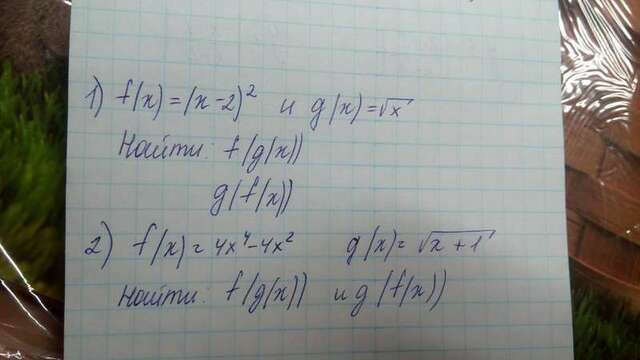 1) f(x) = (x-2)² и g(x) = √x
Найти: f(g(x))
g(f(x))
2) f(x) = 4x⁴-4x² g(x) = √x+1
Найти: f(g(x)) и g(f(x))